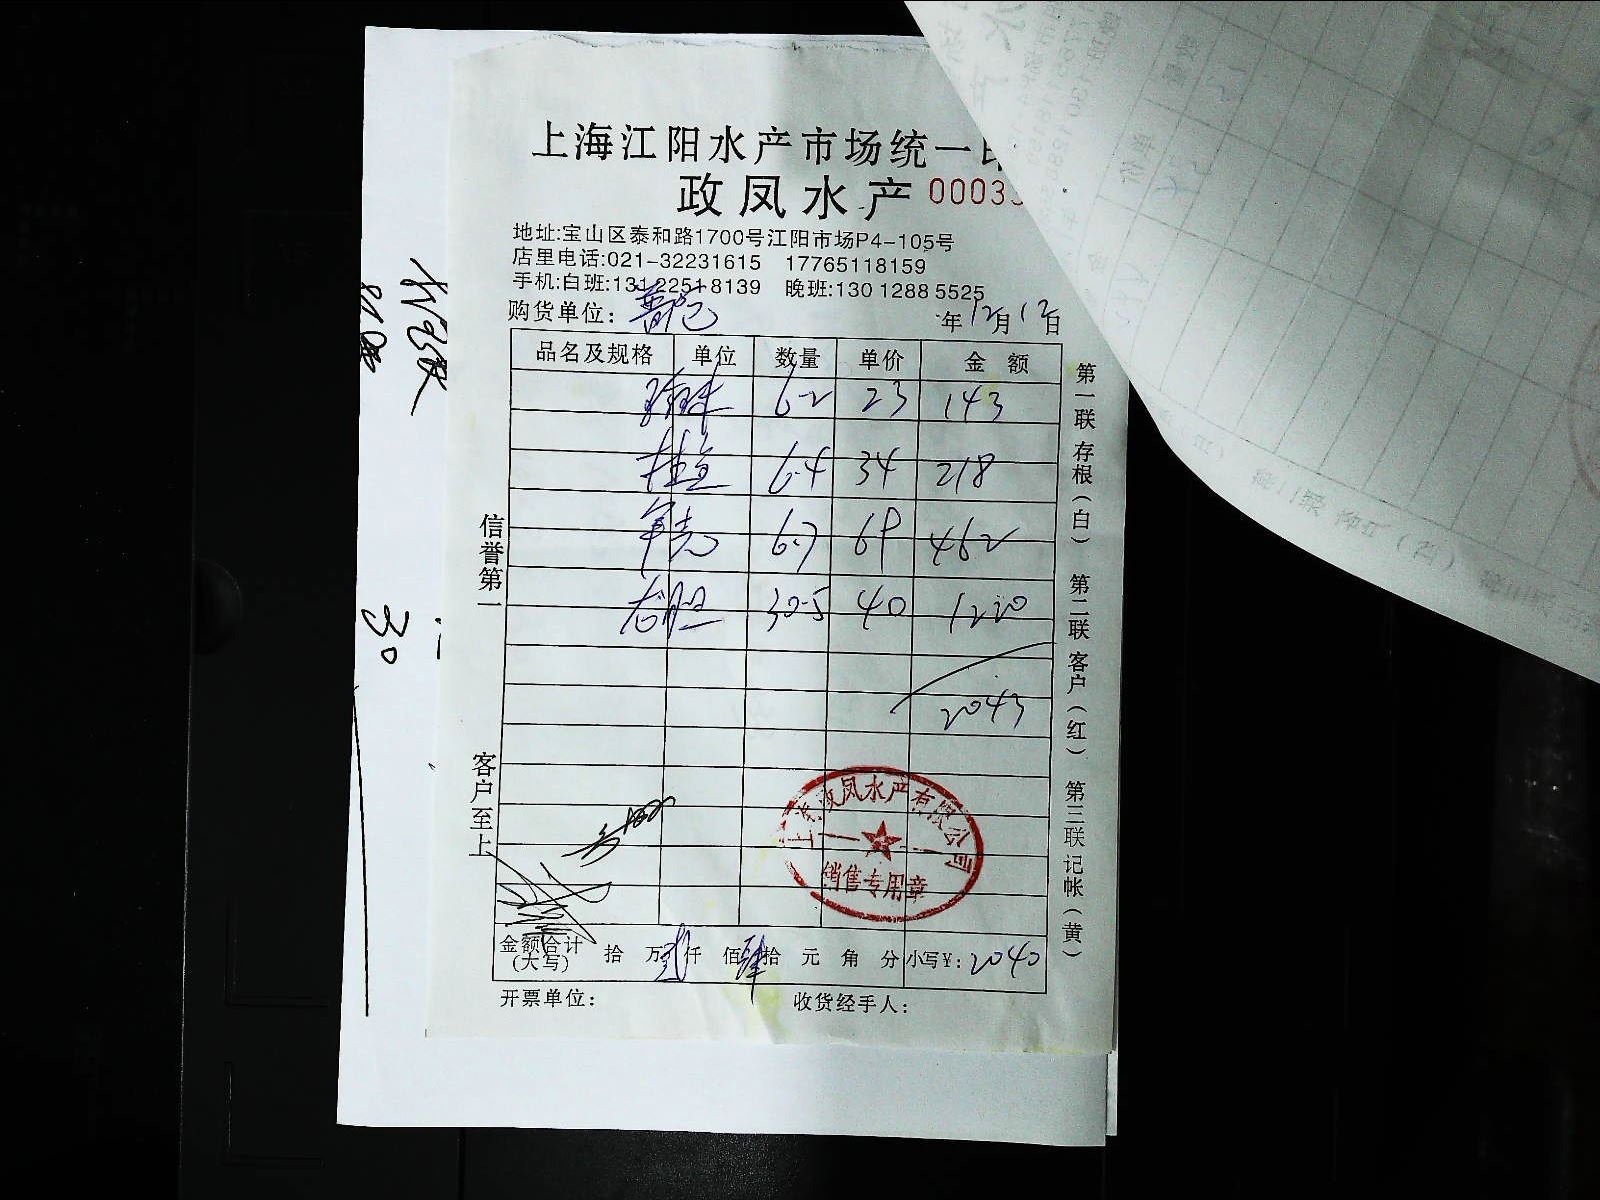 上海江阳水产市场统一
政凤水产 0003
地址:宝山区泰和路1700号江阳市场P4-105号
店里电话:021-32231615 17765118159
手机:白班:131 2251 8139 晚班:130 1288 5525
购货单位: 年12月12日
品名及规格 单位 数量 单价 金 额
6.2 23 143
桂鱼 6.4 34 218
6.7 69 462
龙胆 30.5 40 1220
2043
信誉第一
客户至上
第一联 存根(白) 第二联 客户(红) 第三联 记帐(黄)
上海政凤水产有限公司
销售专用章
金额合计(大写) 拾 万 贰 仟 佰 肆 拾 元 角 分 小写¥: 2040
开票单位: 收货经手人:
30